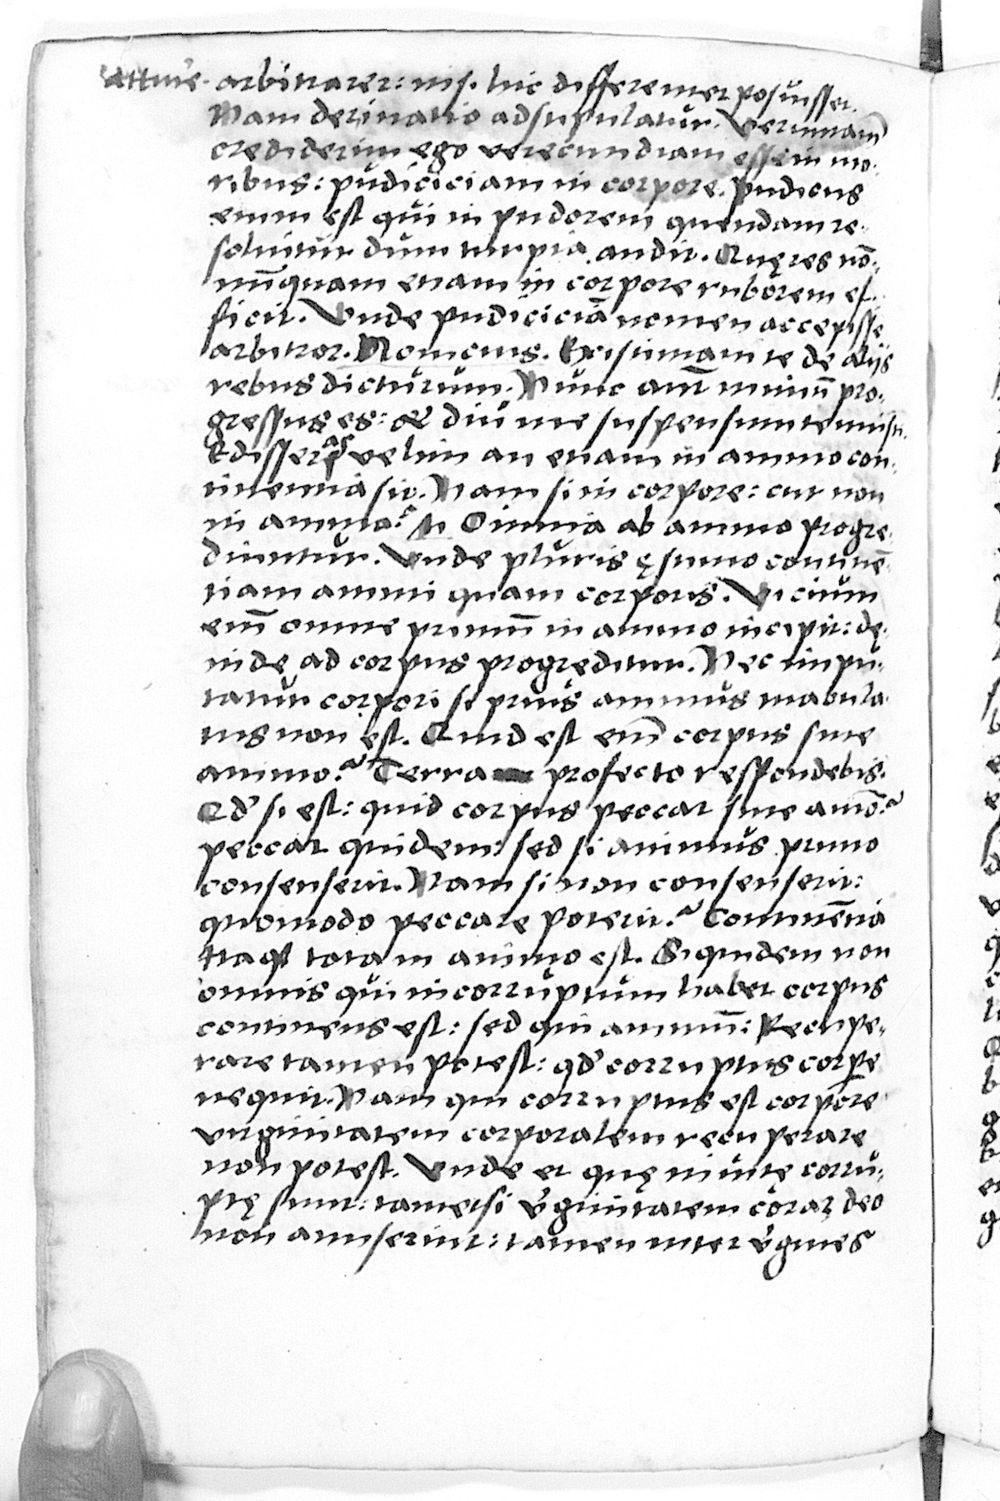 arbitrarer: nisi hic differenter posuisset.
Nam derivatio adstipulatur. Verumtam̄
crediderim ego verecundiam esse in mo-
ribus: pudiciciam in corpore. Pudicus
enim est qui in pudorem quendam re-
solvitur dum turpia audit. Quę res nō-
nūquam etiam in corpore ruborem ef-
ficit. Unde pudiciciā nomen accepisse
arbitror. Nomcius. Existimam te de aliis
rebus dicturum. Nunc aūt nimiū pro-
gressus es: & diu me suspensum tenuisti.
Edisseras velim an etiam in animo con-
tinentia sit. Nam si in corpore: cur non
in anima? N Omnia ab animo progre-
diuntur. Unde pluris ęstimo continē-
tiam animi quam corporis. Vicium
enī omne primū in animo incipit: dę-
inde ad corpus progreditur. Nec impu-
tatur corpori si prius animus macula-
tus non est. Quid est enī corpus sine
animo? Terra profecto respondebis.
Qđ si est: quid corpus peccat sine aīmo?
peccat quidem: sed si animus primo
consenserit. Nam si non consenserit:
quomodo peccare poterit? Continētia
itaqȝ tota in animo est. Siquidem non
omnis qui incorruptum habet corpus
continens est: sed qui animū: Recupe-
rare tamen potest: qđ corruptus corpe
nequit. Nam qui corruptus est corpore
virginitatem corporalem recuperare
non potest. Unde et quę invite corru-
ptę sunt: tametsi v̄ginitatem corā deo
non amiserint: tamen inter v̄gines